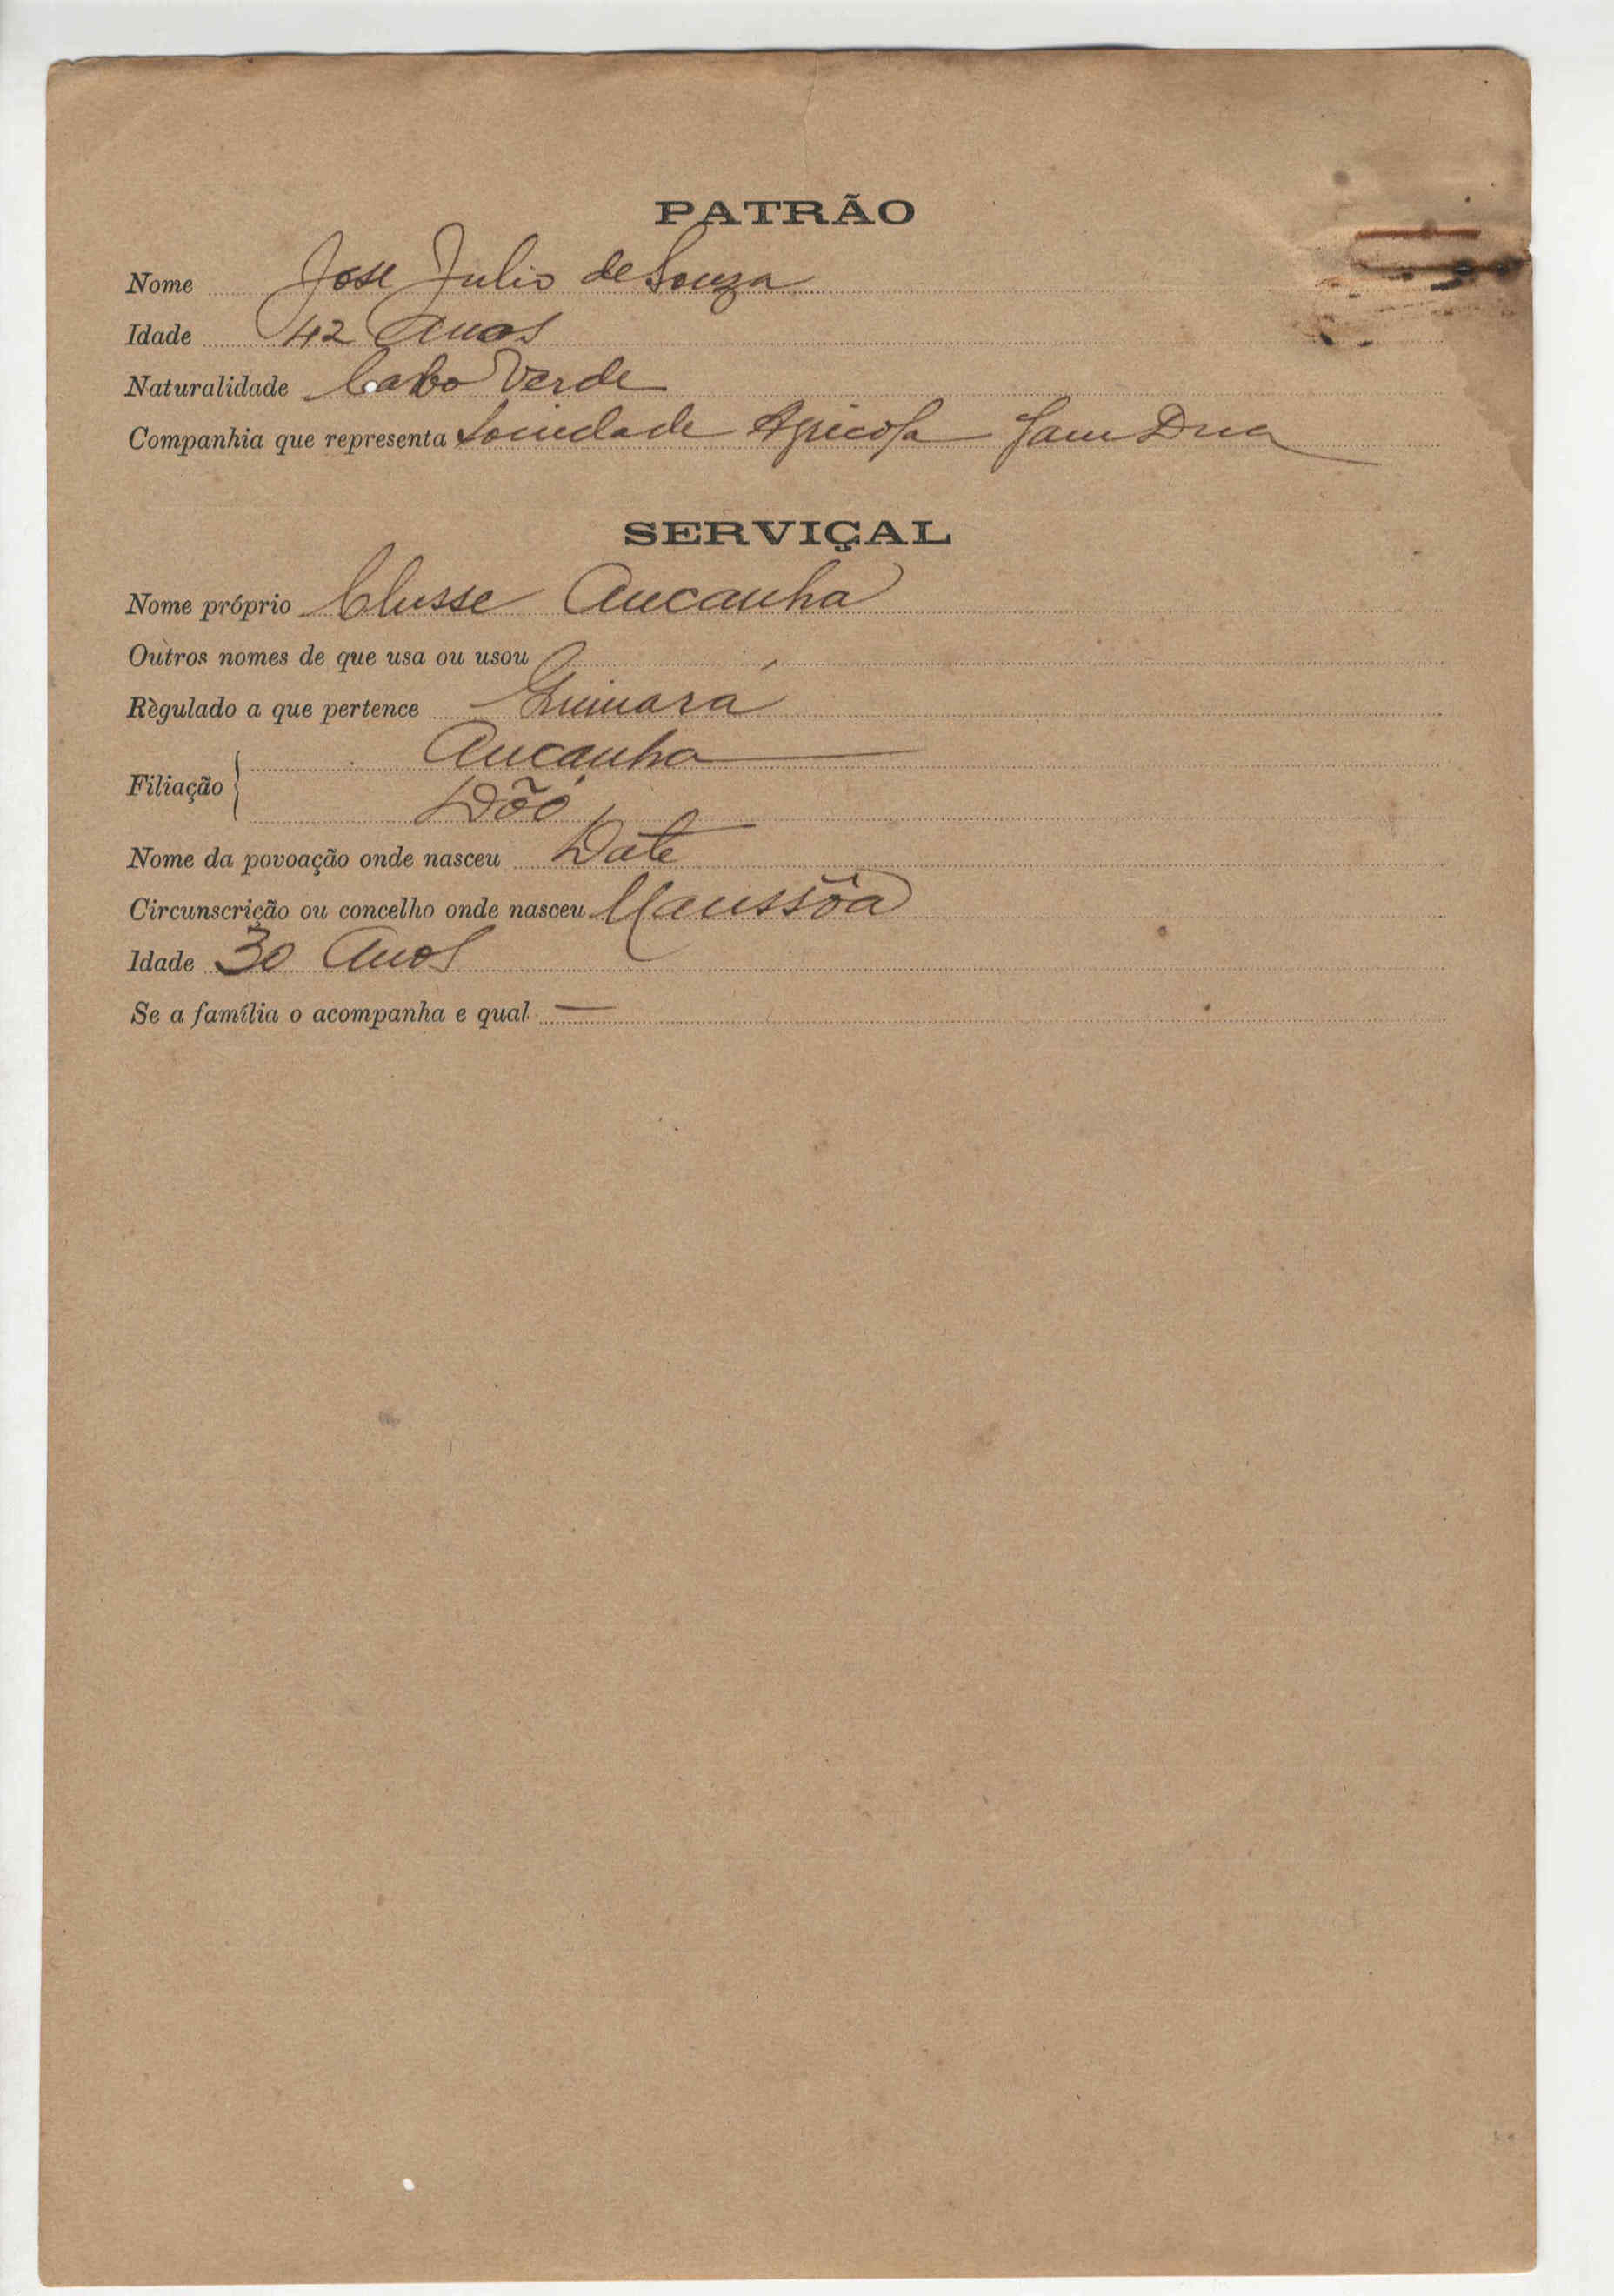 PATRÃO
Nome Jose Julio de Souza
Idade 42 Anos
Naturalidade Cabo Verde
Companhia que representa Sociedade Agricola Gam Dua
SERVIÇAL
Nome próprio Clusse Ancanha
Outros nomes de que usa ou usou
Règulado a que pertence Guimará
Filiação { Ancanha
Dõó
Nome da povoação onde nasceu Date
Circunscrição ou concelho onde nasceu Manssôa
Idade 30 Anos
Se a família o acompanha e qual —